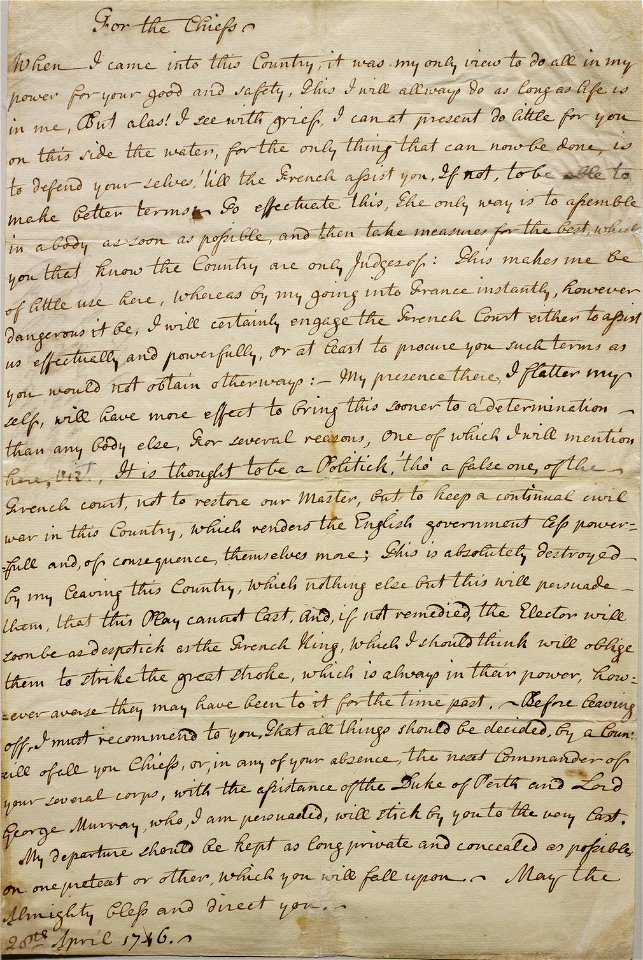 For the Chiefs
When I came into this Country, it was my only view to do all in my
power for your good and safety, This I will allways do as long as life is
in me, But alas! I see with grief, I can at present do little for you
on this side the water, for the only thing that can now be done, is
to defend your selves, 'till the French assist you, If not, to be able to
make better terms. To effectuate this, The only way is to assemble
in a body as soon as possible, and then take measures for the best, which
you that know the Country are only Judges of: This makes me be
of little use here, whereas by my going into France instantly, however
dangerous it be, I will certainly engage the French Court either to assist
us effectually and powerfully, or at least to procure you such terms as
you would not obtain otherways: My presence there, I flatter my
self, will have more effect to bring this sooner to a determination
than any body else, For several reasons, one of which I will mention
here, vizt., It is thought to be a Politick, tho' a false one, of the
French court, not to restore our Master, but to keep a continual civil
war in this Country, which renders the English government less power-
-full and, of consequence, themselves more; This is absolutely destroyed
by my leaving this Country, which nothing else but this will persuade
them, that this Play cannot last, and, if not remedied, the Elector will
soon be as despotick as the French King, which I should think will oblige
them to strike the great stroke, which is always in their power, how=
=ever averse they may have been to it for the time past. Before leaving
off, I must recommend to you, That all things should be decided, by a Coun=
cill of all you Chiefs, or, in any of your absence, the next Commander of
your several corps, with the assistance of the Duke of Perth and Lord
George Murray, who, I am persuaded, will stick by you to the very last.
My departure should be kept as long private and concealed as possible,
on one pretext or other, which you will fall upon. May the
Almighty bless and direct you.
April 1746.